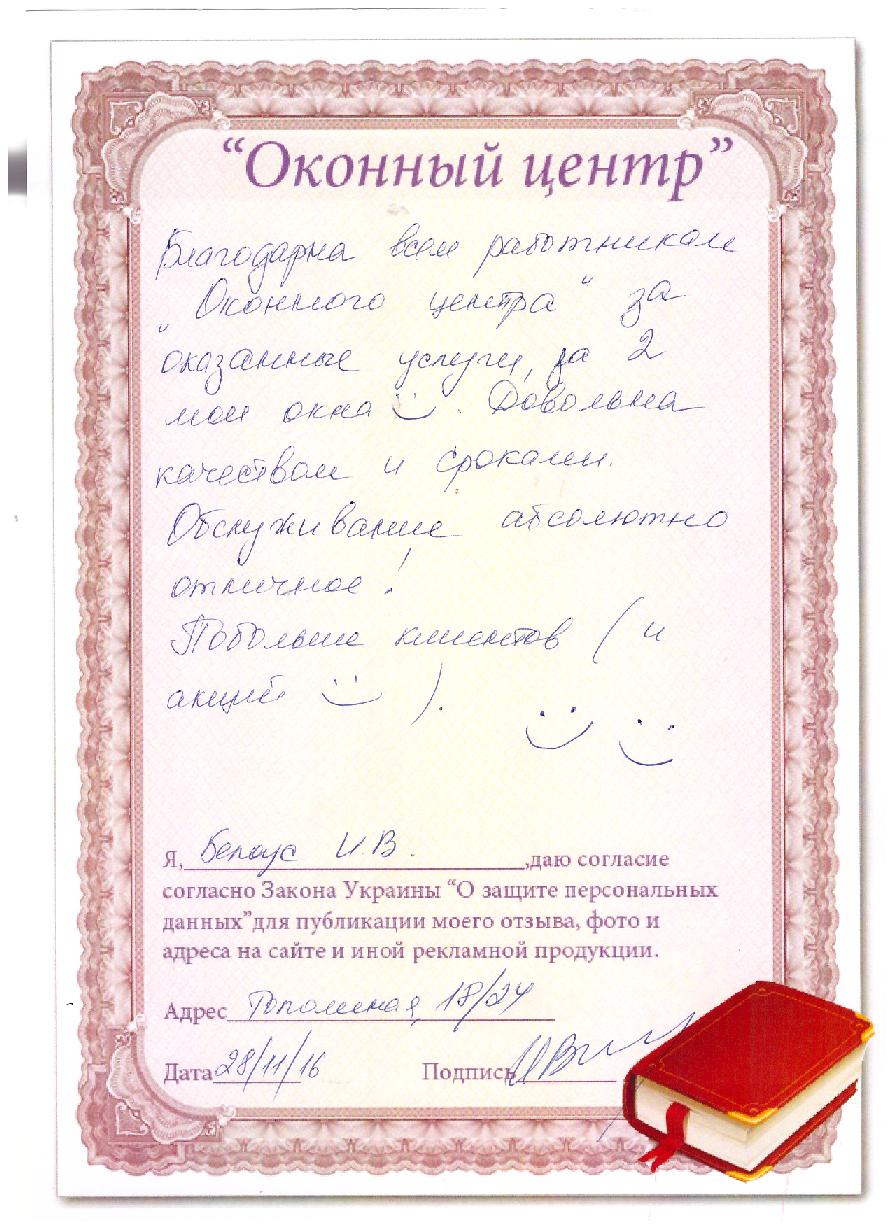 “Оконный центр”
Благодарна всем работникам
„Оконного центра“ за
оказанные услуги, за 2
мои окна. Довольна
качеством и сроками.
Обслуживание абсолютно
отличное!
Побольше клиентов (и
акций).
Я, Белоус И.В. ,даю согласие
согласно Закона Украины “О защите персональных
данных”для публикации моего отзыва, фото и
адреса на сайте и иной рекламной продукции.
Адрес Тополиная, 18/24
Дата 28/11/16 Подпись